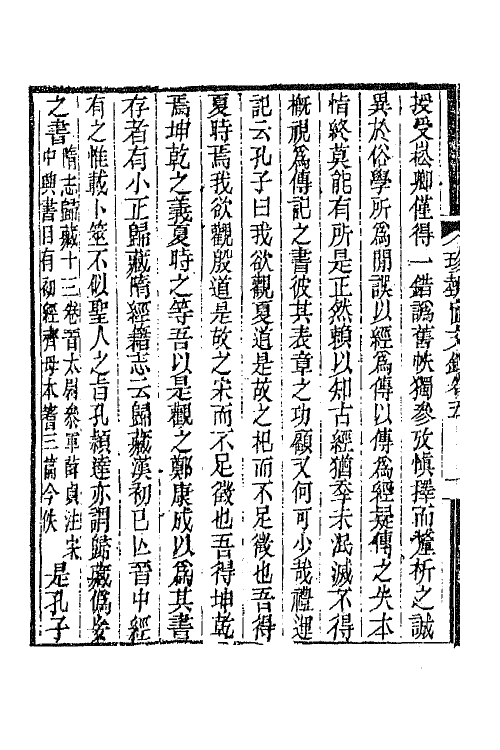 授受崧卿僅得一錯譌舊帙獨參攷慎擇而釐析之誠
異於俗學所爲閒誤以經爲傳以傳爲經疑傳之失本
情終莫能有所是正然賴以知古經猶在未泯滅不得
概視爲傳記之書彼其表章之功顧又何可少哉禮運
記云孔子曰我欲觀夏道是故之杞而不足徵也吾得
夏時焉我欲觀殷道是故之宋而不足徵也吾得坤乾
焉坤乾之義夏時之等吾以是觀之鄭康成以爲其書
存者有小正歸藏隋經籍志云歸藏漢初已亾晉中經
有之惟載卜筮不似聖人之旨孔穎達亦謂歸藏僞妄
之書隋志歸藏十三卷晉太尉參軍薛貞注宋
中興書目有初經齊母本蓍三篇今佚
是孔子